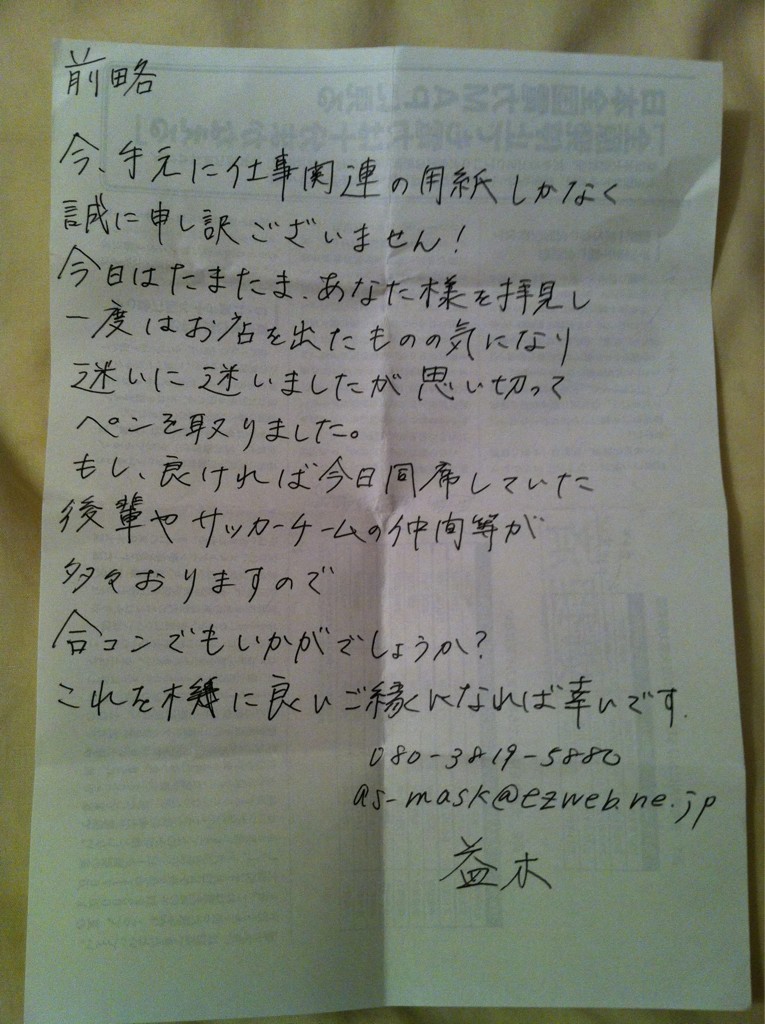 前略
今、手元に仕事関連の用紙しかなく
誠に申し訳ございません!
今日はたまたま、あなた様を拝見し
一度はお店を出たものの気になり
迷いに迷いましたが思い切って
ペンを取りました。
もし、良ければ今日同席していた
後輩やサッカーチームの仲間等が
多々おりますので
合コンでもいかがでしょうか?
これを機に良いご縁になれば幸いです.
080-3819-5880
as-mask@ezweb.ne.jp
益木